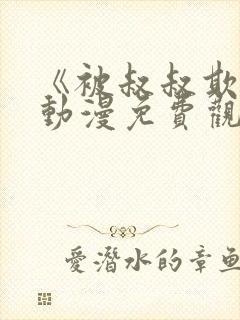 《被叔叔欺
動漫免費觀
愛潛水的章魚